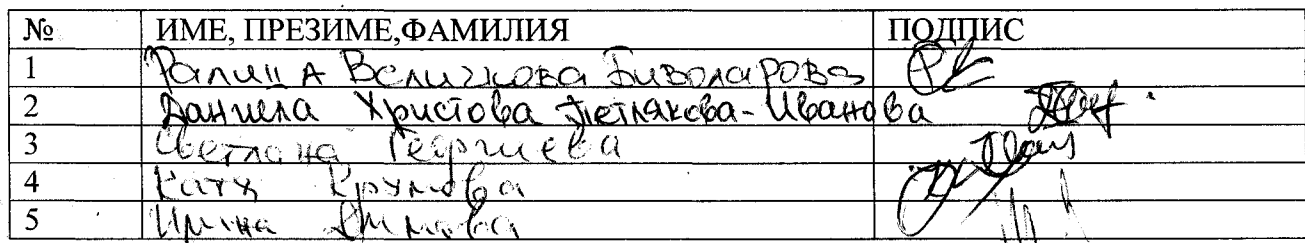 № ИМЕ, ПРЕЗИМЕ,ФАМИЛИЯ ПОДПИС
1 Ралица Величкова Биволарова
2 Даниела Христова Петлякова-Иванова
3 Светлана Георгиева
4 Катя Крумова
5 Ирина Димова